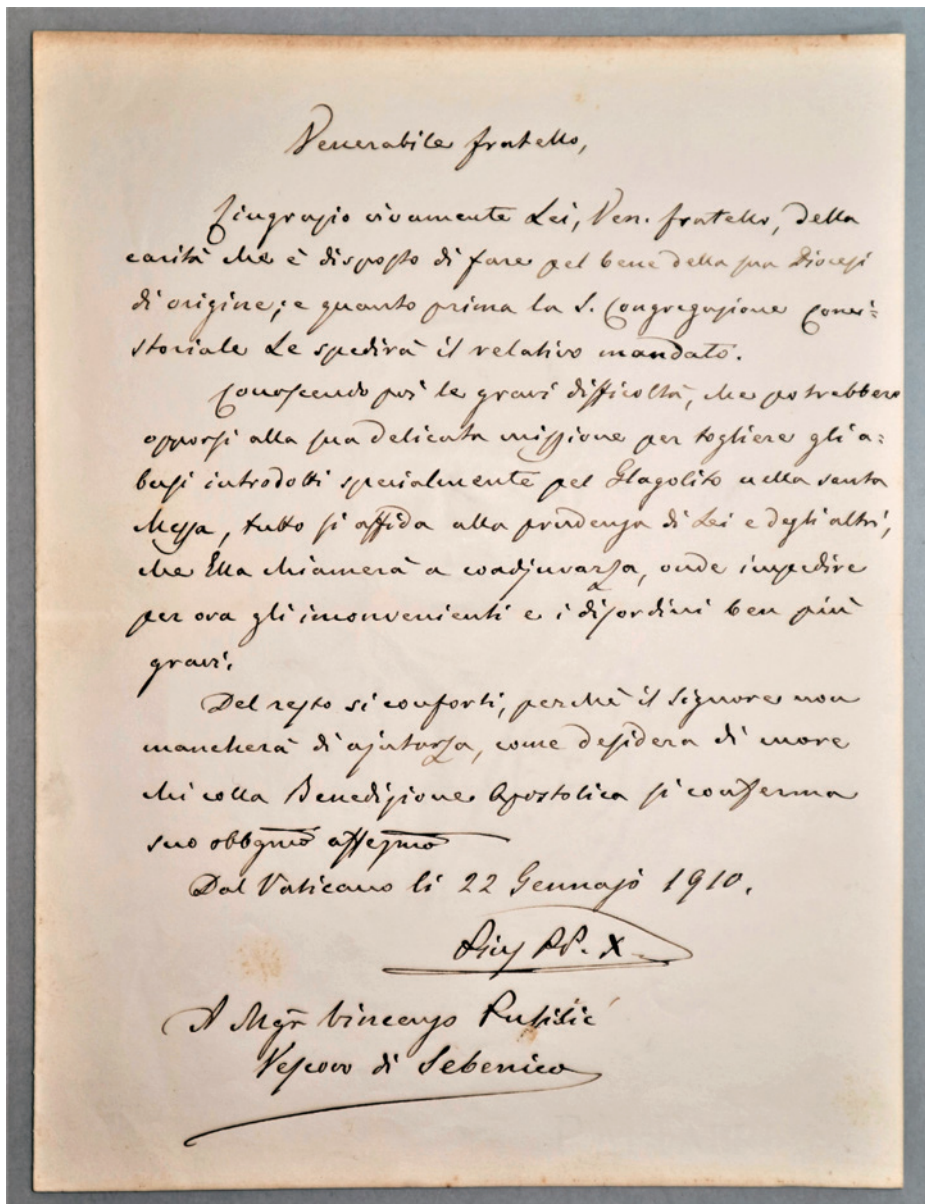 Venerabile fratello,
Ringrazio vivamente Lei, Ven. fratello, della
carità che è disposto di fare pel bene della sua Diocesi
di origine; e quanto prima la S. Congregazione Conci=
storiale Le spedirà il relativo mandato.
Conoscendo poi le gravi difficoltà, che potrebbero
opporsi alla sua delicata missione per togliere gli a=
busi introdotti specialmente pel Glagolito nella santa
Messa, tutto si affida alla prudenza di Lei e degli altri,
che Ella chiamerà a coadjuvarla, onde impedire
per ora gli inconvenienti e i disordini ben più
gravi.
Del resto si conforti, perchè il Signore non
mancherà di ajutarla, come desidera di cuore
chi colla Benedizione Apostolica si conferma
suo obbgmo affezmo
Dal Vaticano li 22 Gennajo 1910.
Pius PP. X
A Mgr Vincenzo Pulisić
Vescovo di Sebenico